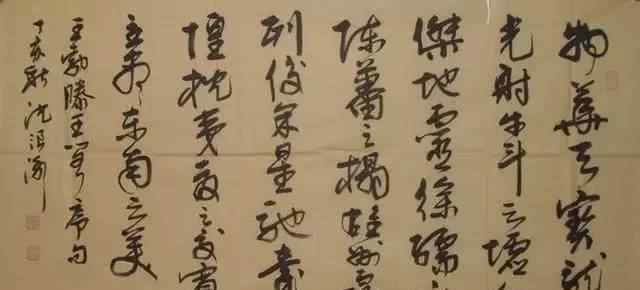 物華天寶龍
光射牛斗之墟
傑地靈徐孺
陳蕃之榻雄州霧
列俊采星馳臺
隍枕夷夏之交賓
主盡東南之美
王勃滕王閣序句
丁亥秋沈